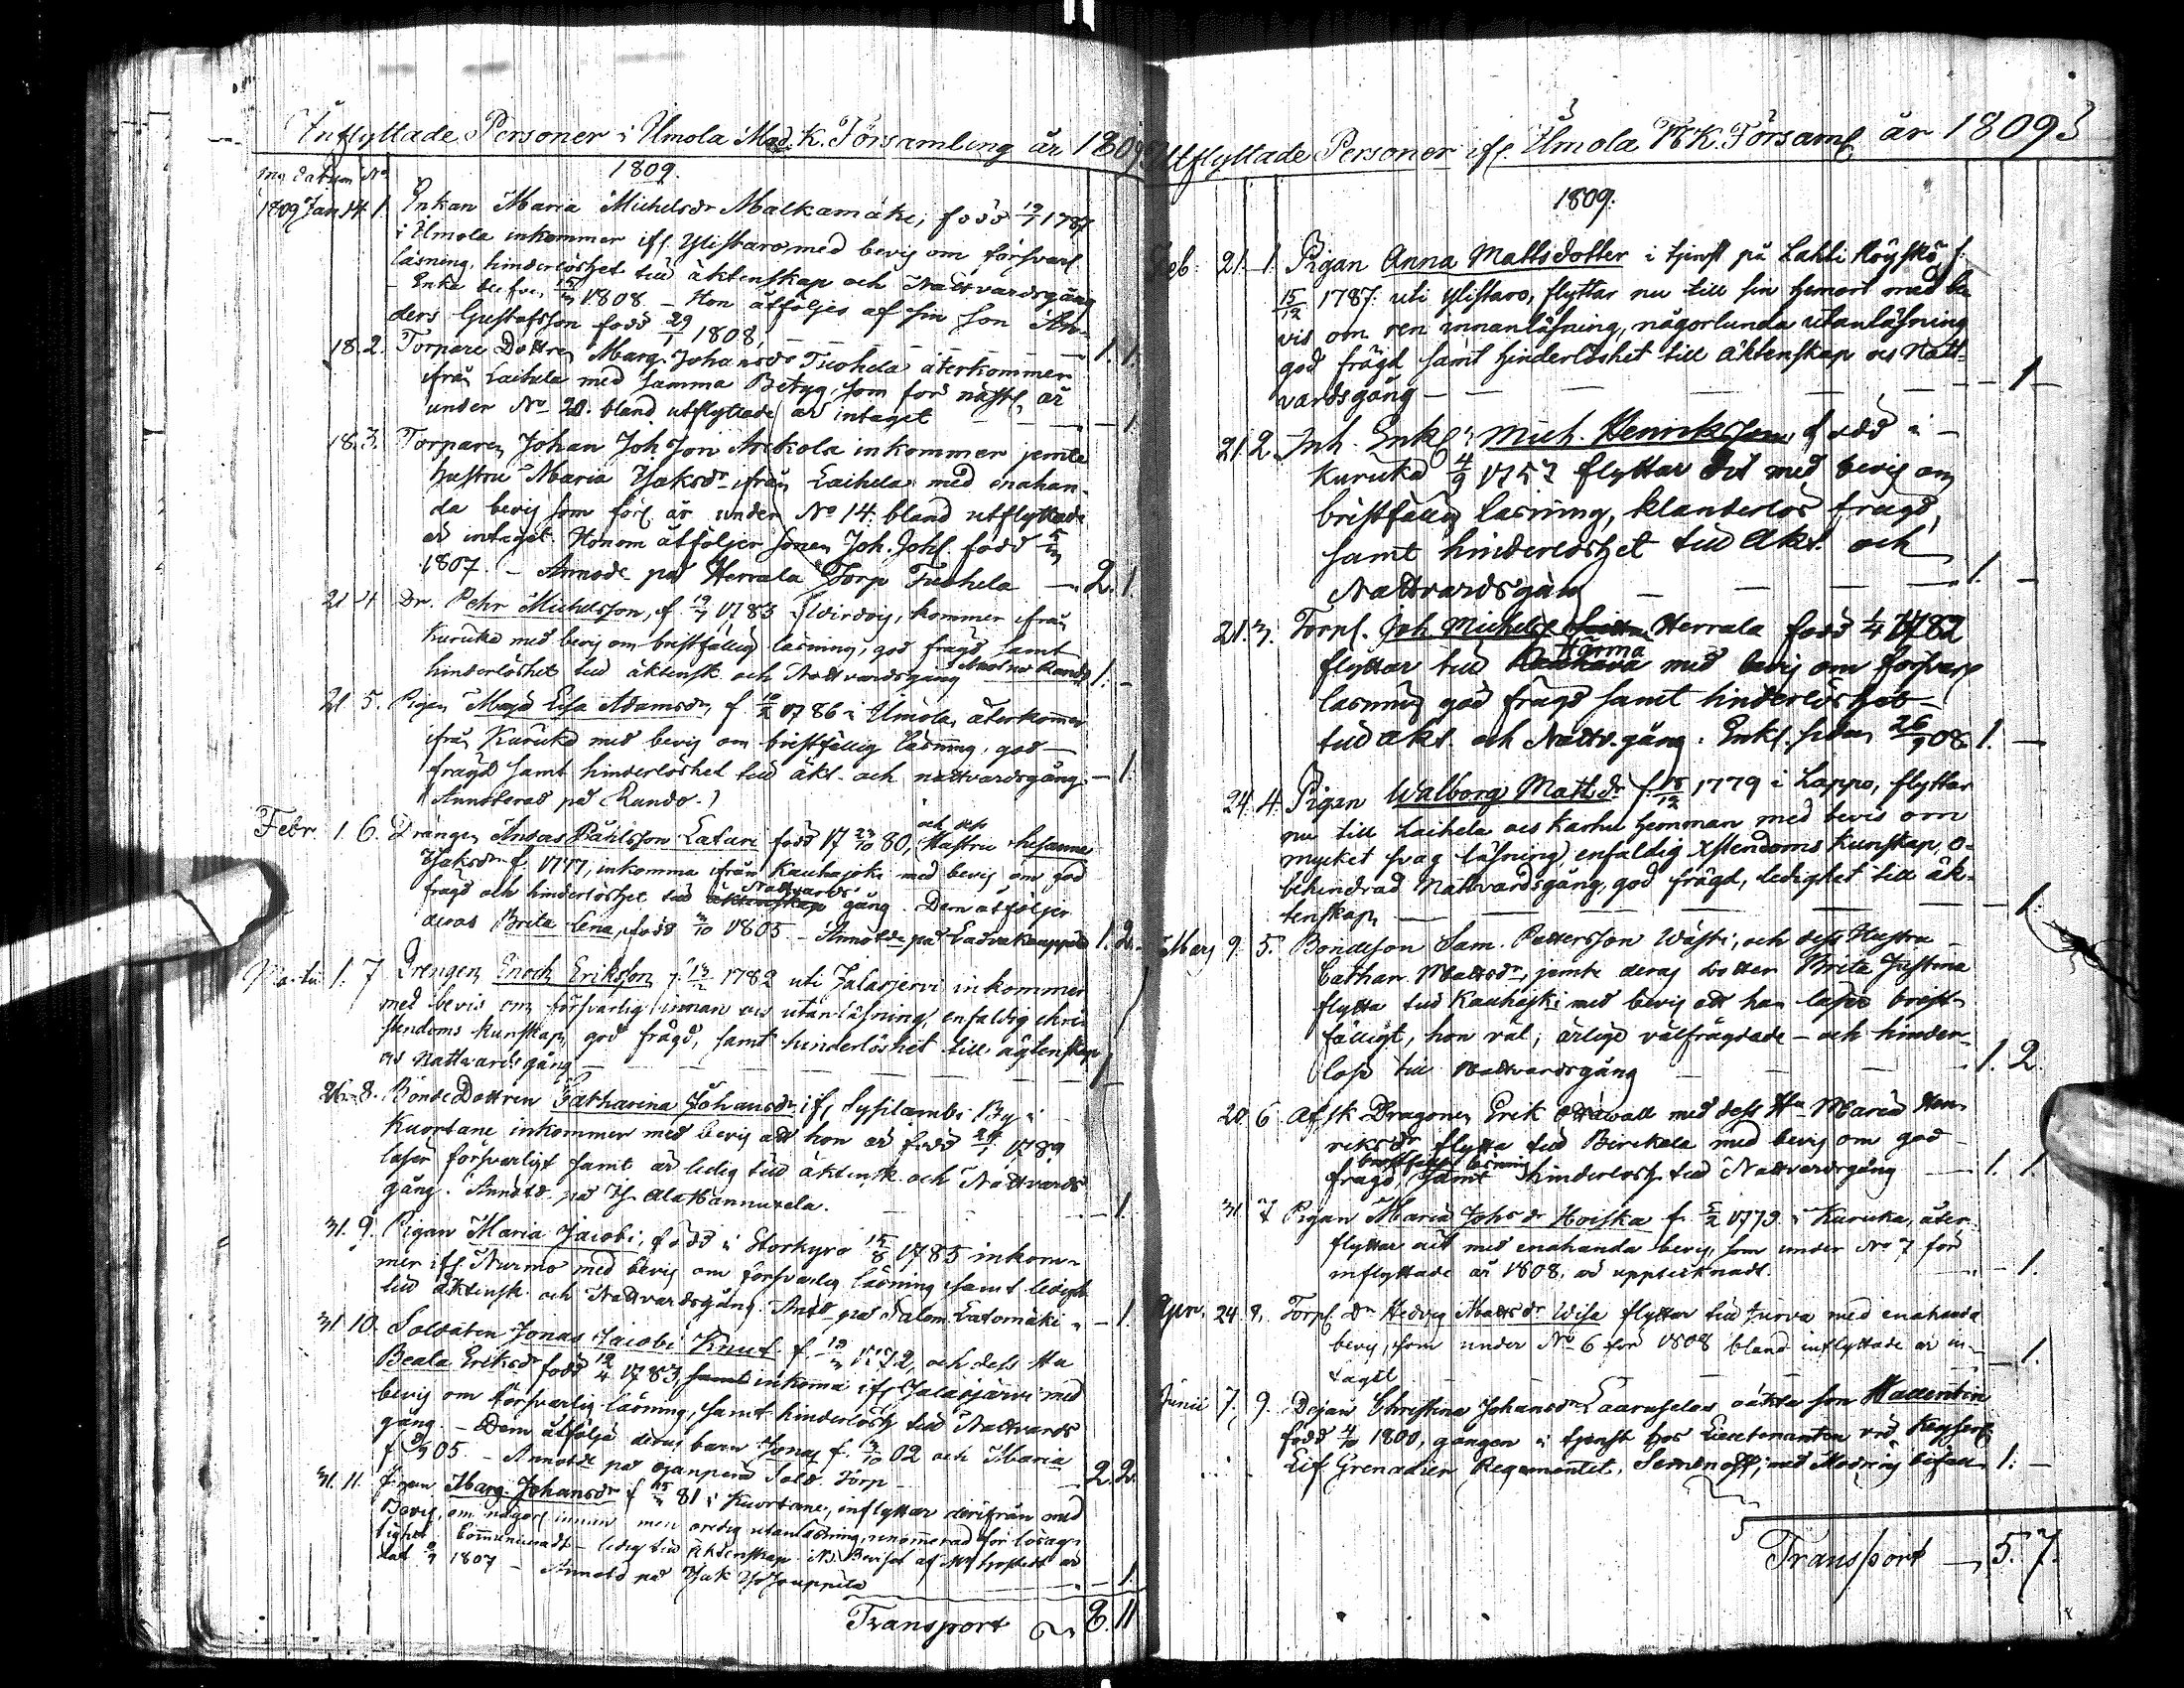 Inflyttade Personer i Ilmola Mod. K. Församling år 1809
Mon Datum No
1809.
1809 Jan 4 1. Enkan Maria Michelsdr Malkamäki, född 19/7 1787
i Ilmola inkommer ifr. Ylistaro, med bevis om försvarl.
läsning, hinderlöshet till äktenskap och Nattvardsgång
- Enka 1808 - Hon åtföljes af sin Son An-
ders Gustafsson född 29/1 1808, 1. 1.
18. 2. Torpare Dottren Marg. Johansdr Tuohela återkommer
ifrån Laihela med samma Betyg, som för näst. år
under No 20. bland utflyttade är intaget - 1.
18. 3. Torparen Johan Joh.Son Arckola inkommer jemte
hustru Maria Isaksdr ifrån Laihela med enahan-
da bevis som förl. år under No 14. bland utflyttade
är intaget. Honom åtföljer sonen Joh. Johs. född
1807. - Annote på Herrala Torp Tuohela - 2. 1.
21 4 Dr. Pehr Michelsson, f. 19/7 1783 i Wirdois, kommer ifrån
Kurikka med bevis om bristfällig läsning, god frägd samt
hinderlöshet till äktensk. och Nattvardsgång 1. -
21 5. Pigan Maja Lisa Adamsdr, f. 1786 i Ilmola, återkommer
ifrån Kurikka med bevis om bristfällig läsning, god
frägd samt hinderlöshet till äkt. och nattvardsgång. - 1.
(Annoterad på Rando.)
Febr. 1. 6. Drängen Andas Påhlsson Laturi född 17 23/10 80, och dess Hustru Susanna
Isaksdr f. 1777, inkomma ifrån Kauhajoki med bevis om god
frägd och hinderlöshet till äktenskap Nattvards gång. Dem åtföljer
deras Brita Lena, född 1805. - Annotde på 1. 2.
Martii 1. 7 Drengen Enoch Eriksson, f. 1782 uti Jalasjervi inkommer
med bevis om försvarlig innan och utan läsning, enfaldig chri-
stendoms kunskap, god frägd, samt hinderlöshet till ägtenskap
och Nattvards gång - 1 -
26. 8. Bonde Dottren Catharina Johansdr ifr. Sysilambi By i
Kuortane inkommer med bevis att hon är född 1789
läser försvarligt samt är ledig till äktensk. och Nattvards
gång. Annotd. på Is. AlaHannuxela. - 1.
31. 9. Pigan Maria Jacobi, född i Storkyro 15/8 1785 inkom-
mer ifr. Nurmo med bevis om försvarlig läsning samt ledigh.
till äktensk. och Nattvardsgång. Antd på Salom. Latomäki - 1.
31 10. Soldaten Jonas Jacobi Knut f. 1772, och dess Hu
Beata Eriksdr född 12/4 1783, samt inkoma ifr. Jalasjärvi med
bevis om försvarlig läsning, samt hinderlösh. till Nattvards
gång. - Dem åtfölja deras barn Jonas f. 02 och Maria
f. 05. - Annotd på Sold. Torp 2. 2.
31. 11. Pigan Marg. Johansdr f. 81 i Kuortane, inflyttar derifrån med
Bevis, om någorl. innan men oredig utanläsning, renommerad för lösag-
tighet. Communicerat - ledig till Äktenskap. är
dat. 1807 - Annotd på Isak 1.
Transport 8. 11

Utflyttade Personer ifr. Ilmola M K. Förs­aml. år 1809
1809.
Feb: 21. 1. Pigan Anna Mattsdotter i tjenst på Lahti Röyskö f.
15/12 1787. uti Ylistaro, flyttar nu till sin hemort med be-
vis om ren innanläsning, någorlunda utanläsning
god frägd samt hinderlöshet till Äktenskap och Natt-
vardsgång - - 1 -
21. 2. Inh. Enkl. Mich. Henriksson född i -
Kurikka 4/9 1757 flyttar dit med bevis om
bristfällig läsning, klanderlös frägd,
samt hinderlöshet till Äkt. och
Nattvardsgång - 1. -
21. 3. Torps. Joh. Michels. Herrala född 1/4 1782
flyttar till Kauhava Härmä med bevis om försvarl.
läsning god frägd samt hinderlöshet
till äkt. och Nattv.gång. Enkl. sedan 26/9 08 1. -
24. 4. Pigan Walborg Mattsdr f. 15/12 1779 i Lappo, flyttar
nu till Laihela och Karhu hemman med bevis om
mycket svag läsning, enfaldig Xstendoms Kunskap, o-
behindrad Nattvardsgång, god frägd, ledighet till äk-
tenskap - - 1.
9. 5. Bondeson Sam. Pettersson Wästi, och dess Hustru -
Cathar. Mattsdr, jemte deras dotter Brita Justina
flytta till Kauhajoki med bevis att han läser brist-
fälligt, hon väl; ärlige välfrägdade - och hinder-
löse till Nattvardsgång - 1. 2.
20. 6 Afsk Dragonen Erik med dess Hu Maria Hen-
riksdr flytta till Birckala med bevis om god
frägd, bristfällig läsning samt hinderlösh. till Nattvardsgång - 1. 1.
31. 7 Pigan Maria Johsdr Hoiska f. 5/2 1779. i Kurikka, åter
flyttar dit med enahanda bevis, som under No 7 för
inflyttade år 1808, är upptecknadt. - 1.
Apr. 24. 8. Torps. Dr Hedvig Mattsdr Wisa flyttar till Jurva med enahanda
bevis, som under No 6 för 1808 bland inflyttade är in-
taget - 1.
Junii 7. 9. Pojan Christina Johansdr oäkta son
född 1800, gången i tjenst hos Lieutenanten vid Keyserl.
Lif Grenadier Regementet, Semenoff, med Modrens bifall 1. -
Transport - 5. 7.